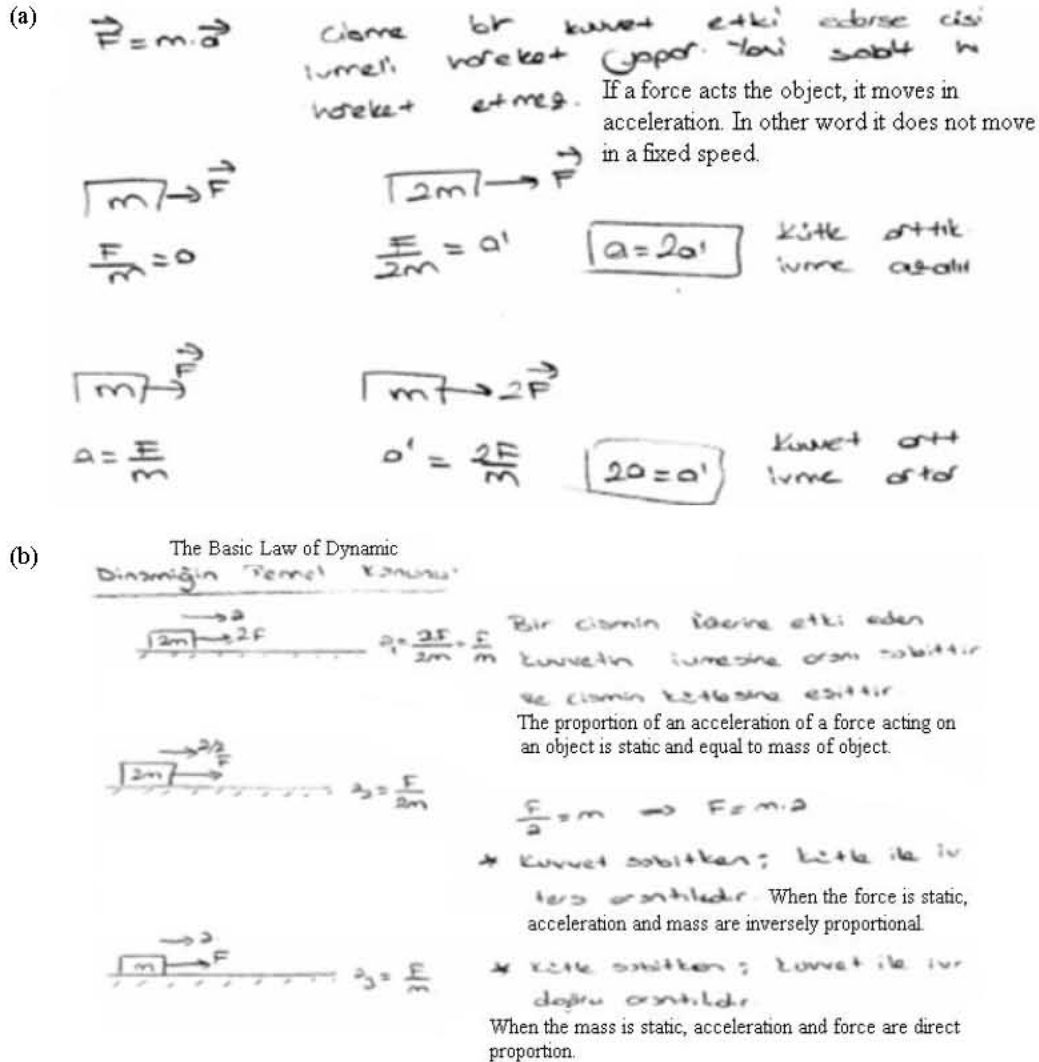 (a)
F = m.a
cisme bir kuvvet etki ederse cisi
ivmeli hareket yapar. Yani sabit h
hareket etmez.
If a force acts the object, it moves in
acceleration. In other word it does not move
in a fixed speed.
m → F
2m → F
F/m = a
F/2m = a'
a = 2a'
kütle arttık
ivme azalır
m → F
m → 2F
a = F/m
a' = 2F/m
2a = a'
kuvvet artt
ivme artar
(b)
The Basic Law of Dynamic
Dinamiğin Temel Kanunu
a
2m 2F
a₁ = 2F/2m = F/m
Bir cismin üzerine etki eden
kuvvetin ivmesine oranı sabittir
ve cismin kütlesine eşittir
The proportion of an acceleration of a force acting on
an object is static and equal to mass of object.
a/2
2m F
a₂ = F/2m
F/a = m ⇒ F = m.a
* Kuvvet sabitken; kütle ile iv
ters orantılıdır.
When the force is static,
acceleration and mass are inversely proportional.
a
m F
a₃ = F/m
* Kütle sabitken; kuvvet ile ivr
doğru orantılıdır.
When the mass is static, acceleration and force are direct
proportion.